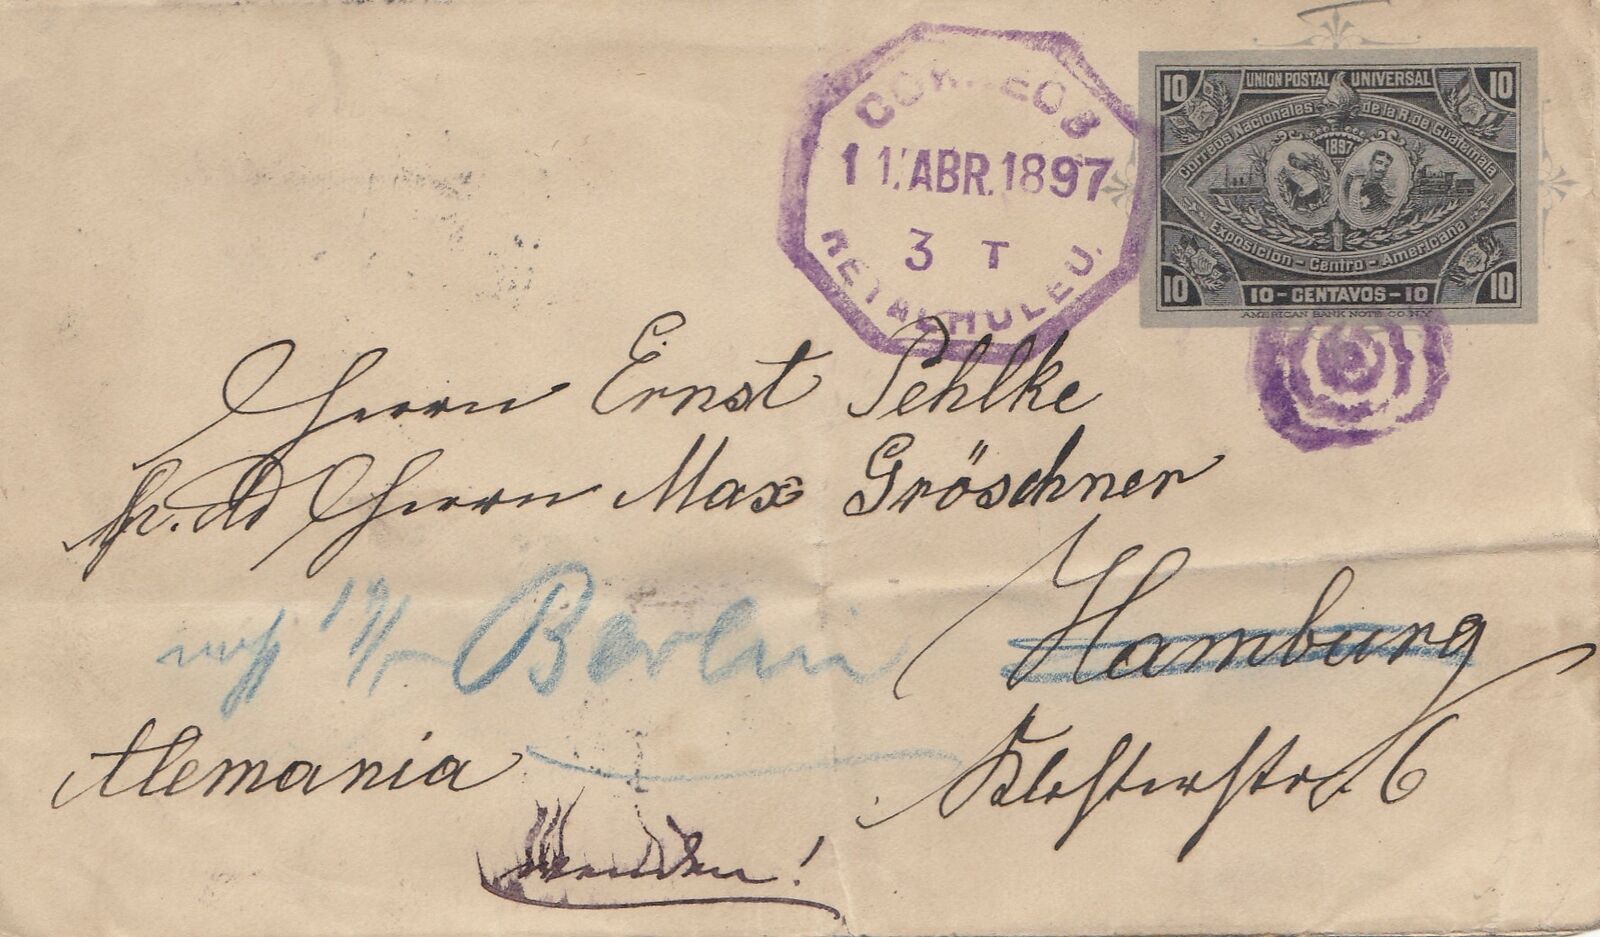 CORREOS
11 ABR. 1897
3 T
RETALHULEU.
10 UNION POSTAL UNIVERSAL 10
Correos Nacionales de la R. de Guatemala
1897
Exposicion - Centro - Americana
10 10-CENTAVOS-10 10
AMERICAN BANK NOTE CO. N.Y.
Herrn Ernst Pehlke
p. Ad Herrn Max Gröschner
Hamburg
Berlin
Alemania
Klosterstr. 6
wenden!